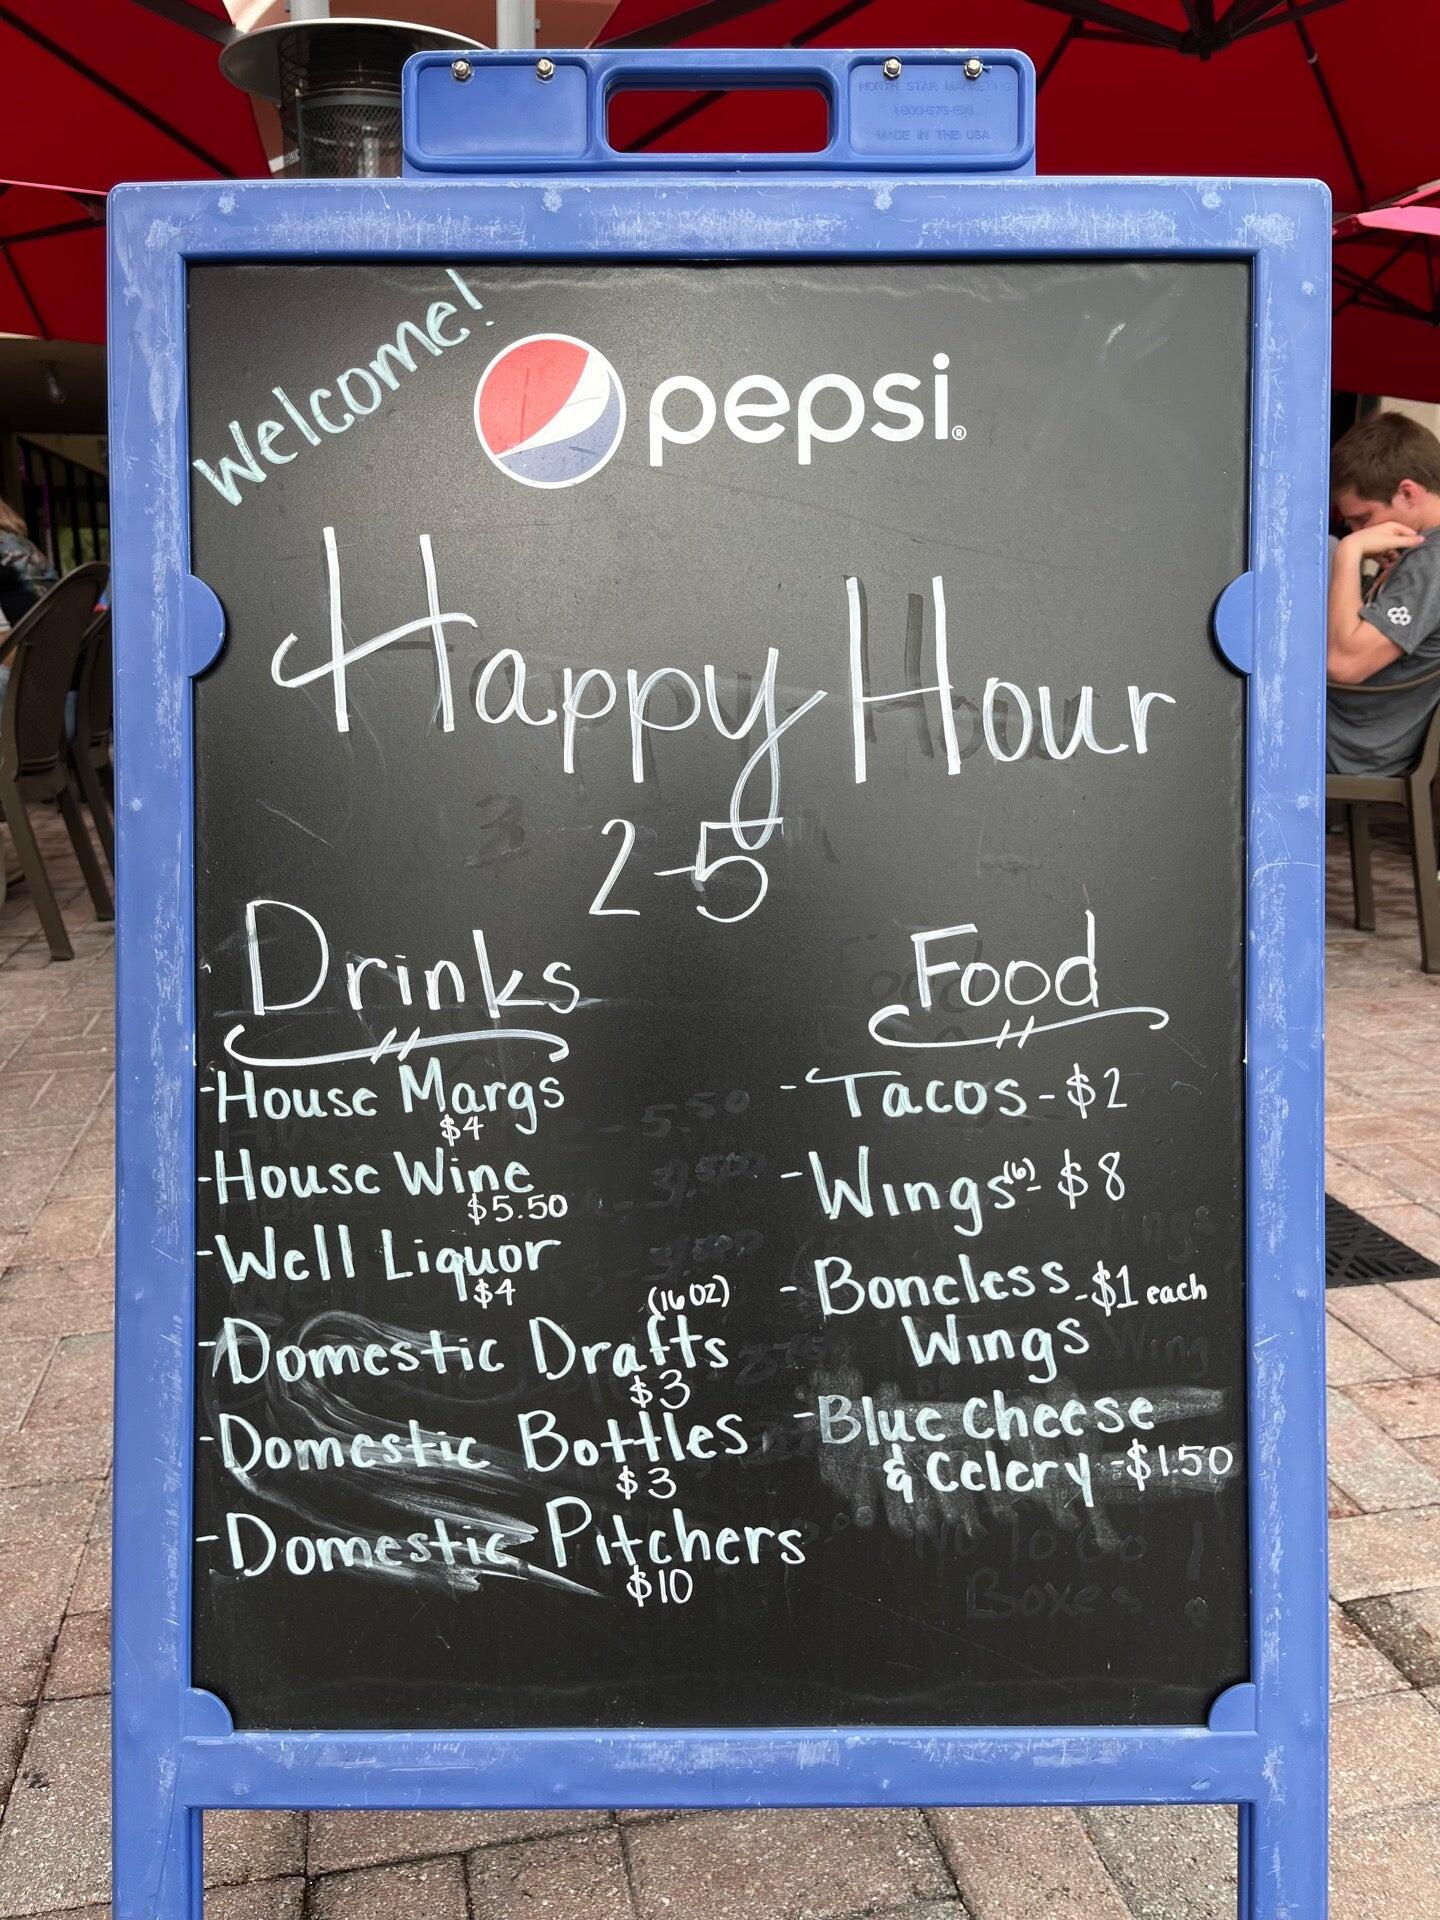 NORTH STAR MARKETING
MADE IN THE USA
Welcome!
pepsi®
Happy Hour
2-5
Drinks
-House Margs
$4
-House Wine
$5.50
-Well Liquor
$4
-Domestic Drafts (16 oz)
$3
-Domestic Bottles
$3
-Domestic Pitchers
$10
Food
-Tacos-$2
-Wings(6)-$8
-Boneless-$1 each
Wings
-Blue Cheese
& Celery-$1.50
No To Go
Boxes!